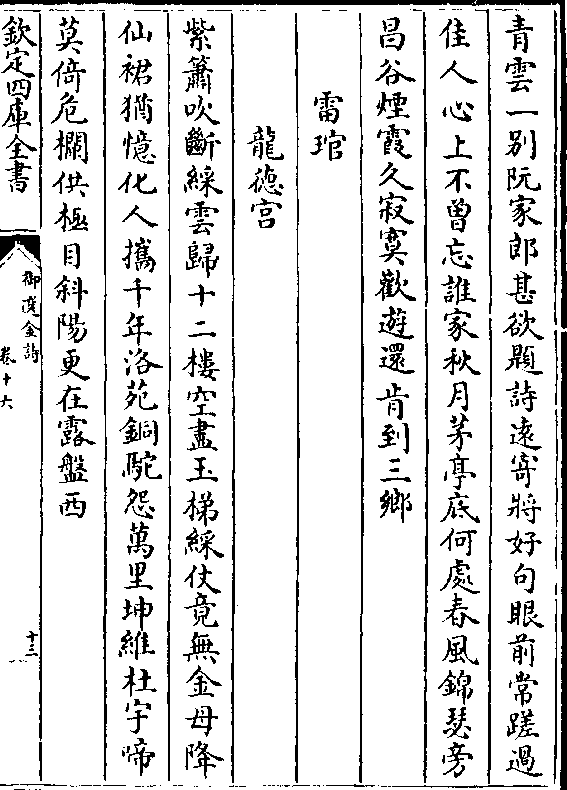 青雲一別阮家郎甚欲題詩遠寄將好句眼前常蹉過
佳人心上不曾忘誰家秋月茅亭底何處春風錦瑟旁
昌谷煙霞久寂寞歡遊還肯到三鄉
雷琯
龍德宫
紫簫吹斷綵雲歸十二樓空盡玉梯綵仗竟無金母降
仙裙猶憶化人攜千年洛苑銅駝怨萬里坤維杜宇啼
莫倚危欄供極目斜陽更在露盤西
欽定四庫全書
御定全金詩
卷十六
十三